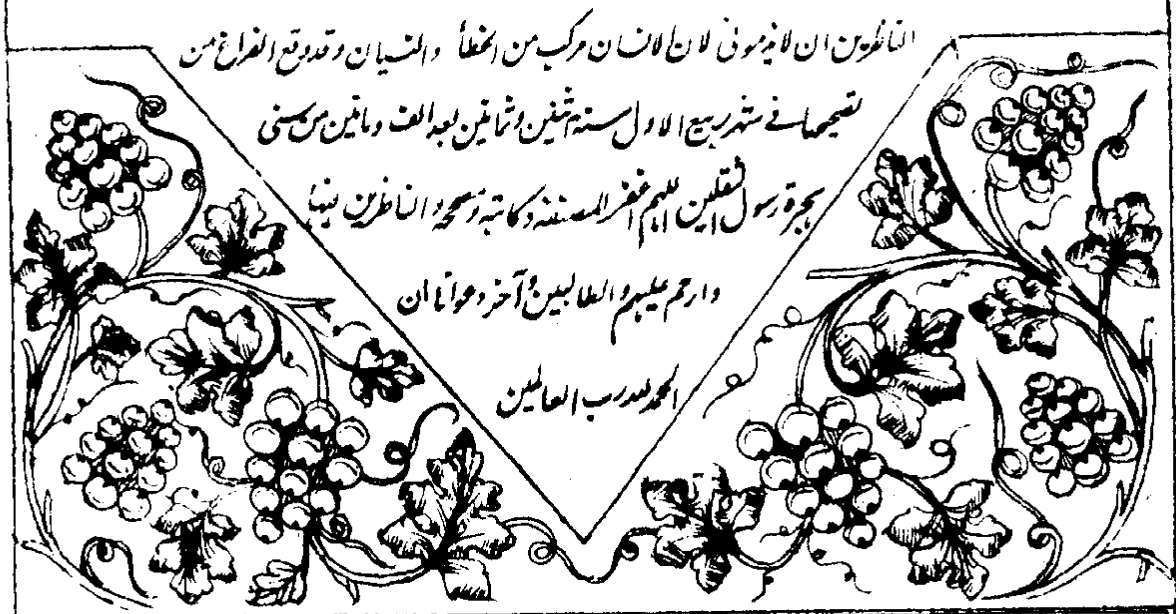 الناظرين ان لا يذموني لان الانسان مركب من الخطأ والنسيان وقد وقع الفراغ من
تصحيحها في شهر ربيع الاول سنة اثنين وثمانين بعد الف وماتين من سنى
هجرة رسول الثقلين اللهم اغفر لمصنفه وكاتبه ومصححه والناظرين فيها
وارحم عليهم والطالبين وآخر دعوانا ان
الحمد لله رب العالمين